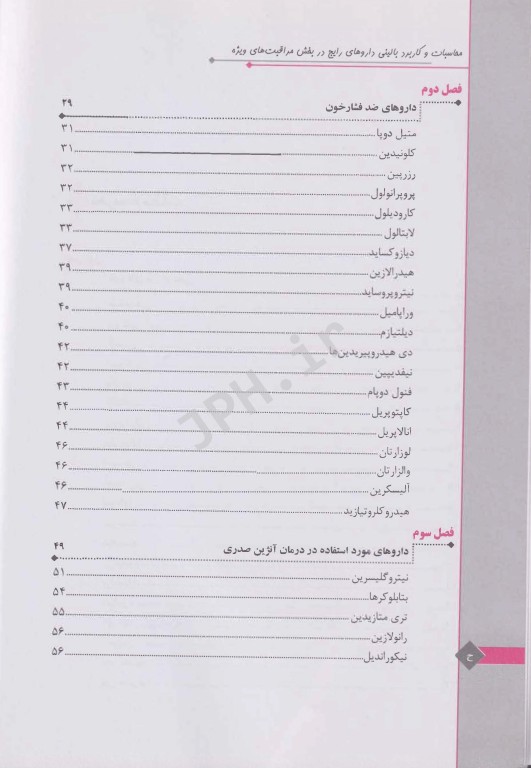 محاسبات و کاربرد بالینی داروهای رایج در بخش مراقبت‌های ویژه
فصل دوم
داروهای ضد فشارخون ۲۹
متیل دوپا ۳۱
کلونیدین ۳۱
رزرپین ۳۲
پروپرانولول ۳۲
کارودیلول ۳۳
لابتالول ۳۳
دیازوکساید ۳۷
هیدرالازین ۳۹
نیتروپروساید ۳۹
وراپامیل ۴۰
دیلتیازم ۴۰
دی هیدروپیریدین‌ها ۴۲
نیفدیپین ۴۲
فنول دوپام ۴۳
کاپتوپریل ۴۴
انالاپریل ۴۴
لوزارتان ۴۶
والزارتان ۴۶
آلیسکرین ۴۶
هیدروکلروتیازید ۴۷
فصل سوم
داروهای مورد استفاده در درمان آنژین صدری ۴۹
نیتروگلیسرین ۵۱
بتابلوکرها ۵۴
تری متازیدین ۵۵
رانولازین ۵۶
نیکوراندیل ۵۶
ح
JPH.ir